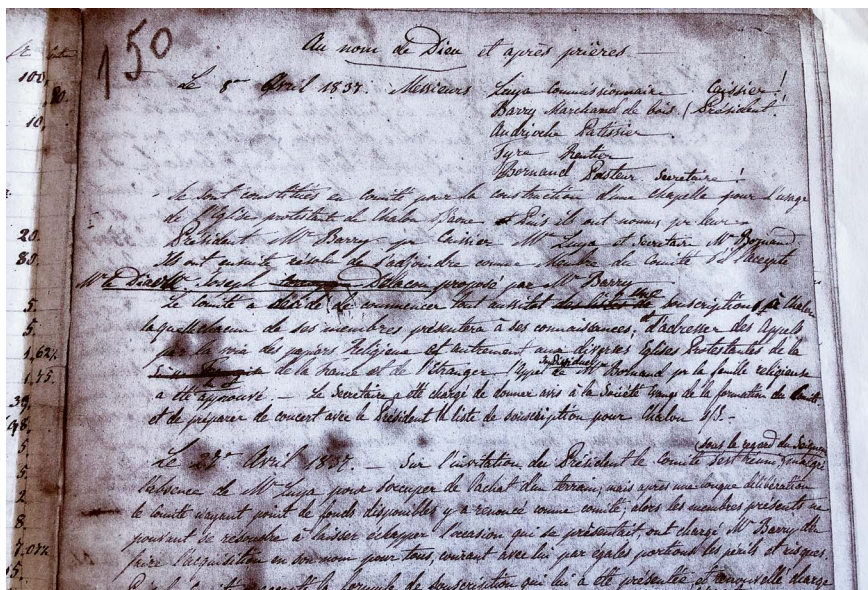 150
Au nom de Dieu et après prières —
Le 8 Avril 1837. Messieurs Luya Commissionnaire Caissier!
Barry Marchand de bois / Président!
Patissier
Tyre Rentier
Bornand Pasteur Secrétaire!
Se sont constitués en comité pour la construction d'une chapelle pour l'usage
de l'Eglise protestante de Chalon Saone Puis ils ont nommé pr leur
Président Mr Barry pr Caissier Mr Luya et Secretaire Mr Bornand
Ils ont ensuite résolu de s'adjoindre comme Membre du Comité
Joseph Dellacou proposé par Mr Barry
Le Comité a décidé de commencer tout aussitot une souscription à Chalon
laquelle chacun de ses membres présentera à ses connaissances, et d'adresser des Appels
par la voie des papiers Religieux et autrement aux diverses Eglises Protestantes de la
de la France et de l'étranger l'Appel de Mr Bornand pr la famille religieuse
a été approuvé. — Le Secrétaire a été chargé de donner avis à la Société de la formation du Comité
et de préparer de concert avec le Président la liste de souscription pour Chalon s/S. —
sous le regard du Seigneur
Le 27 Avril 1837. — Sur l'invitation du Président le Comité s'est réuni malgré
l'absence de Mr Luya pour s'occuper de l'achat d'un terrain; mais après une longue délibération
le Comité n'ayant point de fonds disponibles y a renoncé comme comité; alors les membres présents ne
pouvant se résoudre à laisser échapper l'occasion qui se présentait, ont chargé Mr Barry de
faire l'acquisition en son nom pour tous, courant avec lui par égales portions les périls et risques.
la formule de souscription qui lui a été présentée et renouvellé charge
100
10
20
80
5
5
1.62½
1.75
39
98
5
5
2
8
7.07½
5